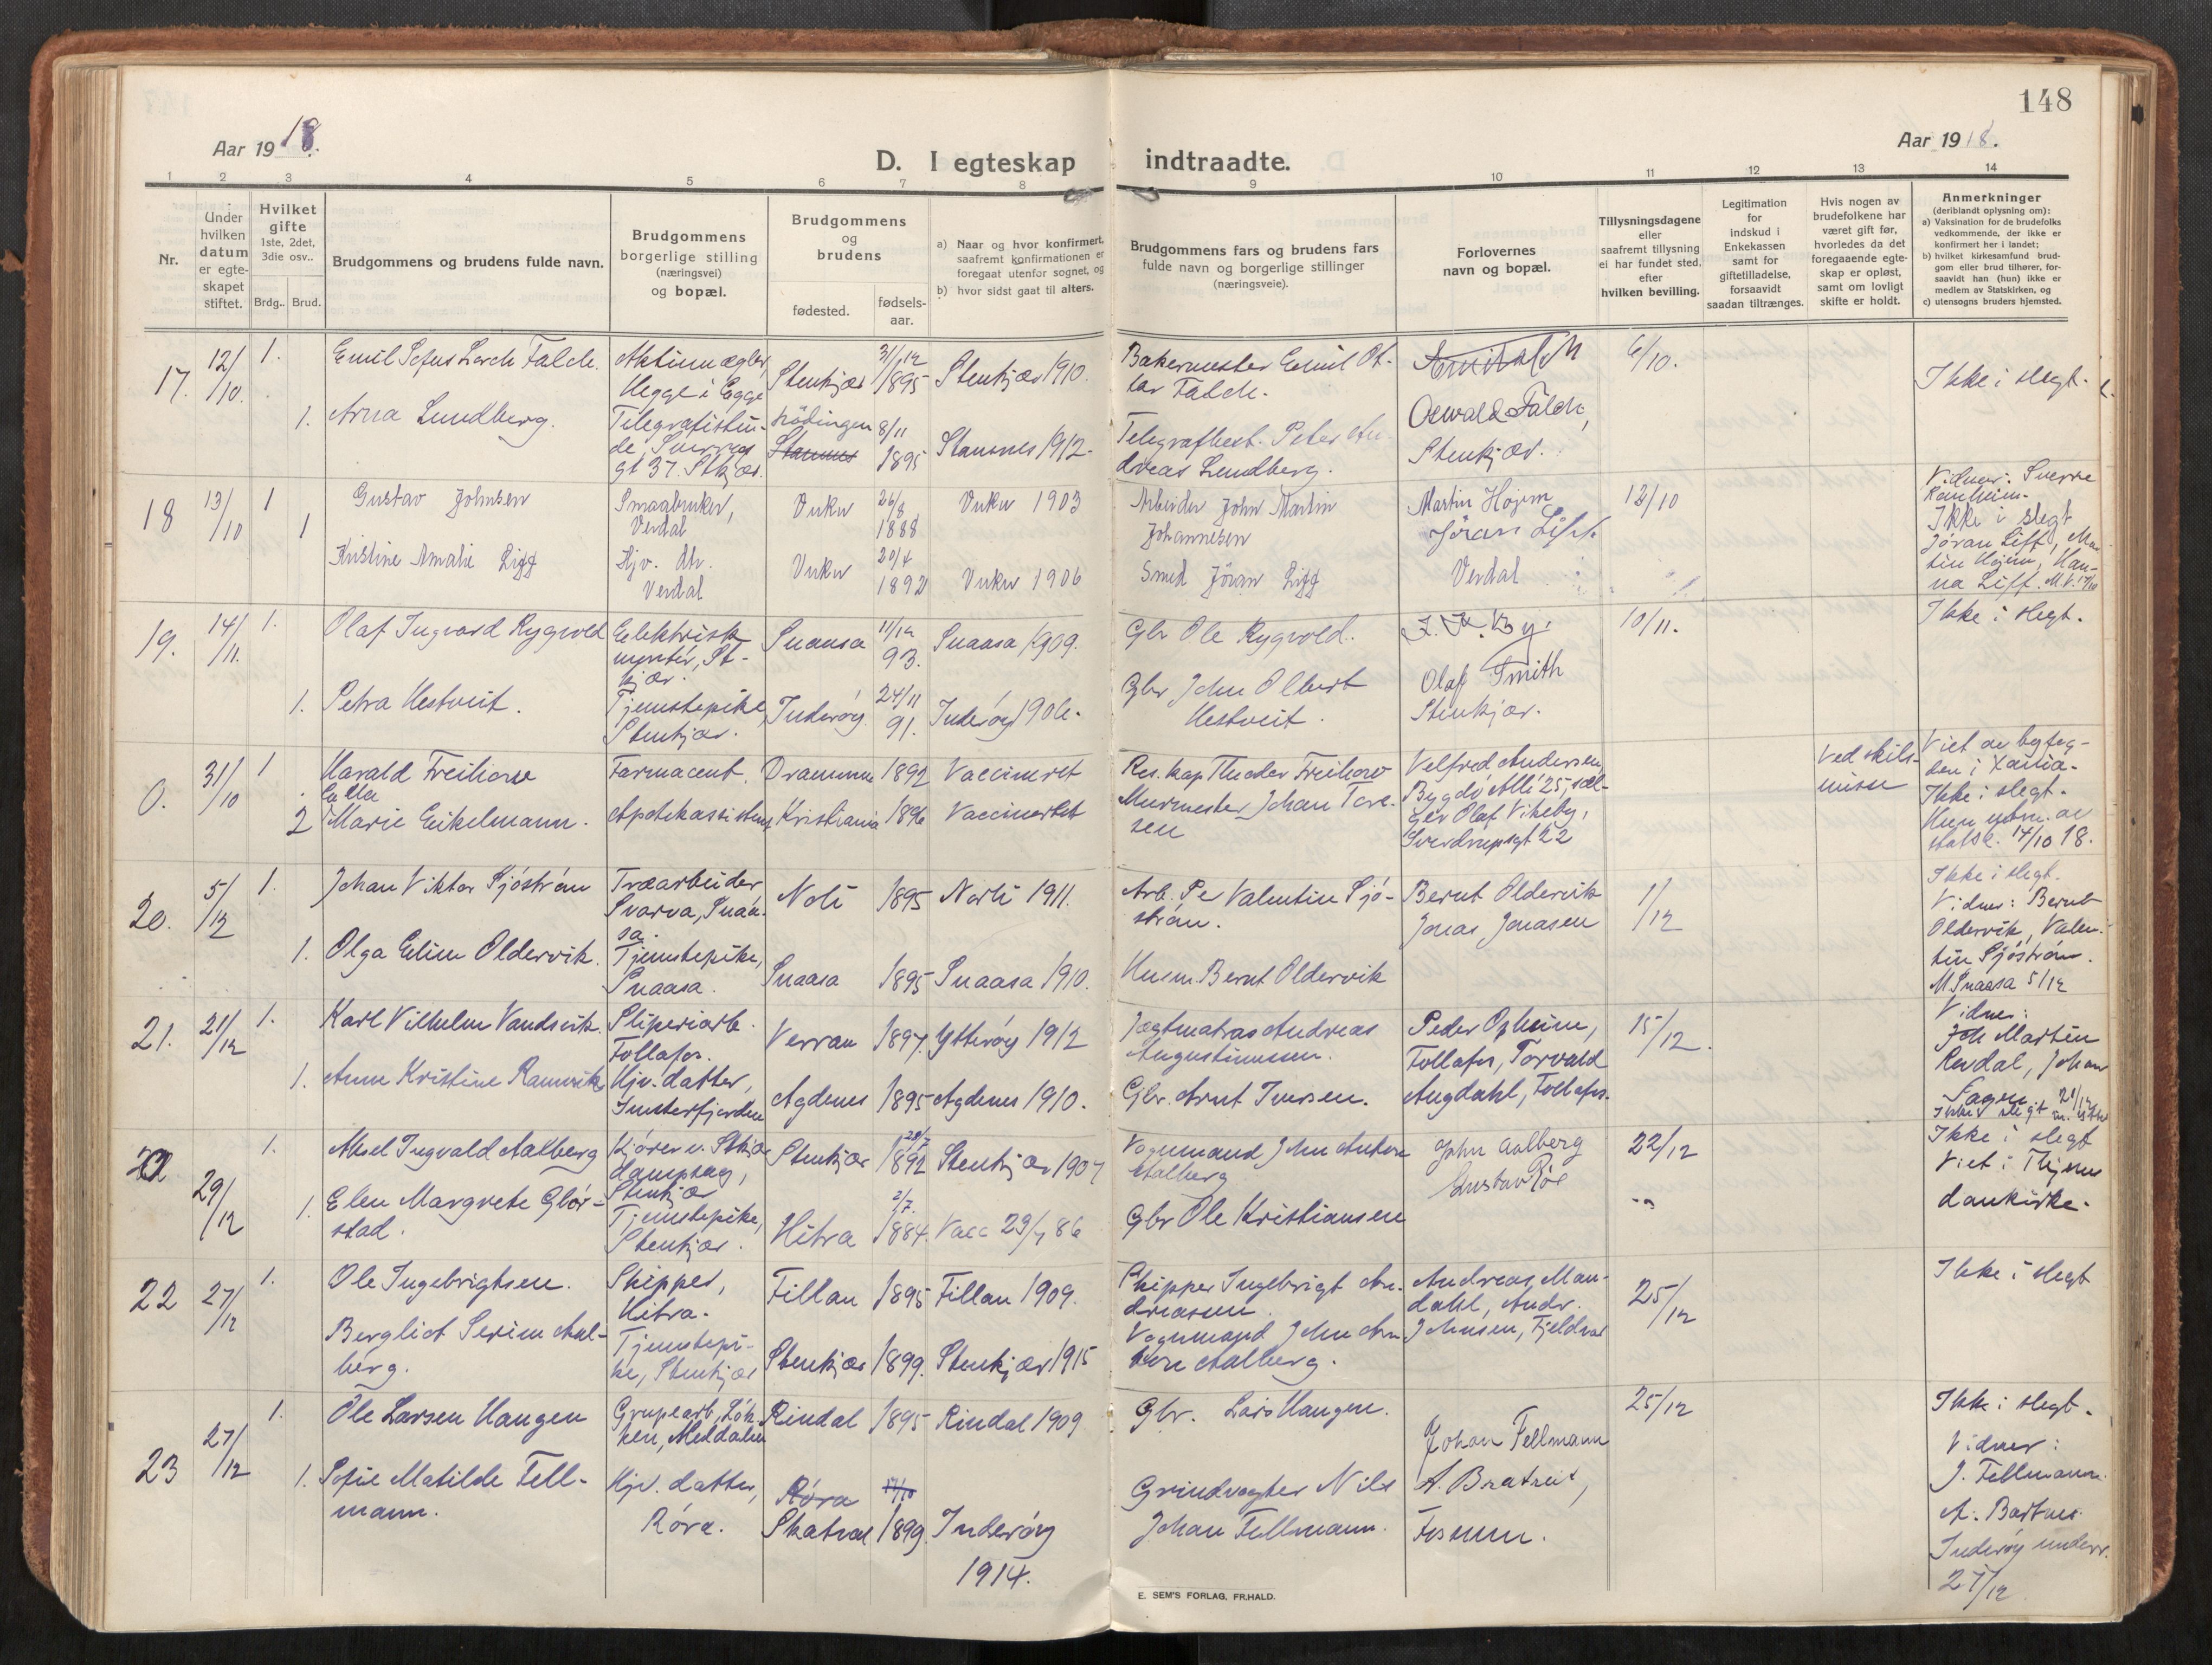 148
Aar 1918.
Aar 1918.
D. I egteskap indtraadte.
1 2 3 4 5 6 7 8 9 10 11 12 13 14
Nr.
Under hvilken datum er egteskapet stiftet.
Hvilket gifte 1ste, 2det, 3die osv..
Brdg.. Brud.
Brudgommens og brudens fulde navn.
Brudgommens borgerlige stilling (næringsvei) og bopæl.
Brudgommens og brudens
fødested.
fødsels-aar.
a) Naar og hvor konfirmert, saafremt konfirmationen er foregaat utenfor sognet, og
b) hvor sidst gaat til alters.
Brudgommens fars og brudens fars fulde navn og borgerlige stillinger (næringsveie).
Forlovernes navn og bopæl.
Tillysningsdagene eller saafremt tillysning ei har fundet sted, efter hvilken bevilling.
Legitimation for indskud i Enkekassen samt for giftetilladelse, forsaavidt saadan tiltrænges.
Hvis nogen av brudefolkene har været gift før, hvorledes da det foregaaende egteskap er opløst, samt om lovligt skifte er holdt.
Anmerkninger (deriblandt oplysning om):
a) Vaksination for de brudefolks vedkommende, der ikke er konfirmert her i landet;
b) hvilket kirkesamfund brudgom eller brud tilhører, forsaavidt han (hun) ikke er medlem av Statskirken, og
c) utensogns bruders hjemsted.
17. 12/10 1. Emil Sofus Lorck Falck. Aktiemægler, Hegge i Egge Stenkjær 31/12 1895 Stenkjær 1910. Bakermester Emil Otlar Falck. 6/10. Ikke i slegt.
1. Arna Lundberg. Telegrafistinde, Sverres gt 37. Stkjær. Lødingen Stamnes 8/11 1895 Stamnes 1912. Telegrafbest. Peter Andreas Lundberg. Oswald Falck, Stenkjær.
18 13/10 1 Gustav Johnsen Smaabruker, Verdal Vuku 26/8 1888 Vuku 1903 Arbeider John Martin Johannesen Martin Højem Jöran Lift. 12/10 Vidner: Sverre Ranheim. Ikke i slegt
1 Kristine Amalie Liff Hjv. dtr. Verdal Vuku 20/4 1892 Vuku 1906 Smed Jöran Liff Verdal Jöran Liff, Martin Højem, Hanna Liff.
19. 14/11. 1. Olaf Ingvard Rygvold Elektrisk montör, Stkjær. Snaasa 11/12 93. Snaasa 1909. Gbr Ole Rygvold. 10/11. Ikke i slegt.
1. Petra Hestveit. Tjenestepike, Stenkjær. Inderöy 24/11 91. Inderöy 1906. Gbr John Olbert Hestveit. Olaf Smith Stenkjær.
0. 31/10 1 Harald Freihow Farmaceut. Drammen 1892 Vaccineret Res. kap Theodor Freihow Velfred Andersen, Bygdö Allé 25, sælger Olaf Vikeby, Sverdrupsgt 22 Ved skilsmisse Viet av byfogden i Xania. Ikke i slegt. Hun utm. av statsk. 14/10 18.
2 Ella Marie Eikelmann. Apotekassistent Kristiania 1896 Vaccinertet Murmester Johan Toresen
20. 5/12 1. Johan Viktor Sjöström Træarbeider Svarva, Snaasa. Noli 1895 Norli 1911. Arb. Pe Valentin Sjöström. Bernt Oldervik Jonas Jonasen 1/12 Ikke i slegt. Vidner: Bernt Oldervik, Valentin Sjöström. M Snaasa 5/12
1. Olga Elise Oldervik. Tjenestepike, Snaasa. Snaasa 1895 Snaasa 1910. Husm. Bernt Oldervik
21. 21/12 1. Karl Vilhelm Vandsvik. Sliperiarb. Follafos. Verran 1897. Ytteröy 1912 Jægtmatros Andreas Augustinussen. Peder Opheim, Follafos, Torvald Angdahl, Follafos. 15/12. Vidner: Joh Martin Rendal, Johan Fagen 21/12
1. Anne Kristine Ramsvik Hjv. datter, Imsterfjorden Agdenes 1895 Agdenes 1910. Gbr. Arnt Iversen.
22 29/12 1. Aksel Ingvald Aalberg Kjörer v. Stkjær dampsag, Stenkjær Stenkjær 28/7 1892 Stenkjær 1907 Vognmand John Anton Aalberg John Aalberg Gustav Röe 22/12 Ikke i slegt Viet i Thjemsdankirke.
1. Elen Margrete Glörstad. Tjenestepike, Stenkjær. Hitra 2/7. 1884. Vacc 29/7 86 Gbr Ole Kristiansen
22 27/12 1. Ole Ingebrigtsen. Skipper, Hitra. Fillan 1895 Fillan 1909. Skipper Ingebrigt Andreassen. Andreas Mandahl, Andr. Johnsen, Fjeldvær 25/12 Ikke i slegt
Bergliot Serine Aalberg. Tjenestepike, Stenkjær Stenkjær 1899. Stenkjær 1915 Vognmand John Anton Aalberg.
23 27/12 1. Ole Larsen Haugen Grupearb, Lökken, Meldalen Rindal 1895 Rindal 1909 Gbr. Lars Haugen. Johan Fellmann 25/12 Ikke i slegt. Vidner: J. Fellmann. A. Bartnes. Inderöy underr. 27/12
1. Sofie Matilde Fellmann. Hjv. datter, Röra. Röra Skatval 17/10 1899. Inderöy 1914. Grindvogter Nils Johan Fellmann.
E. SEM'S FORLAG, FR.HALD.